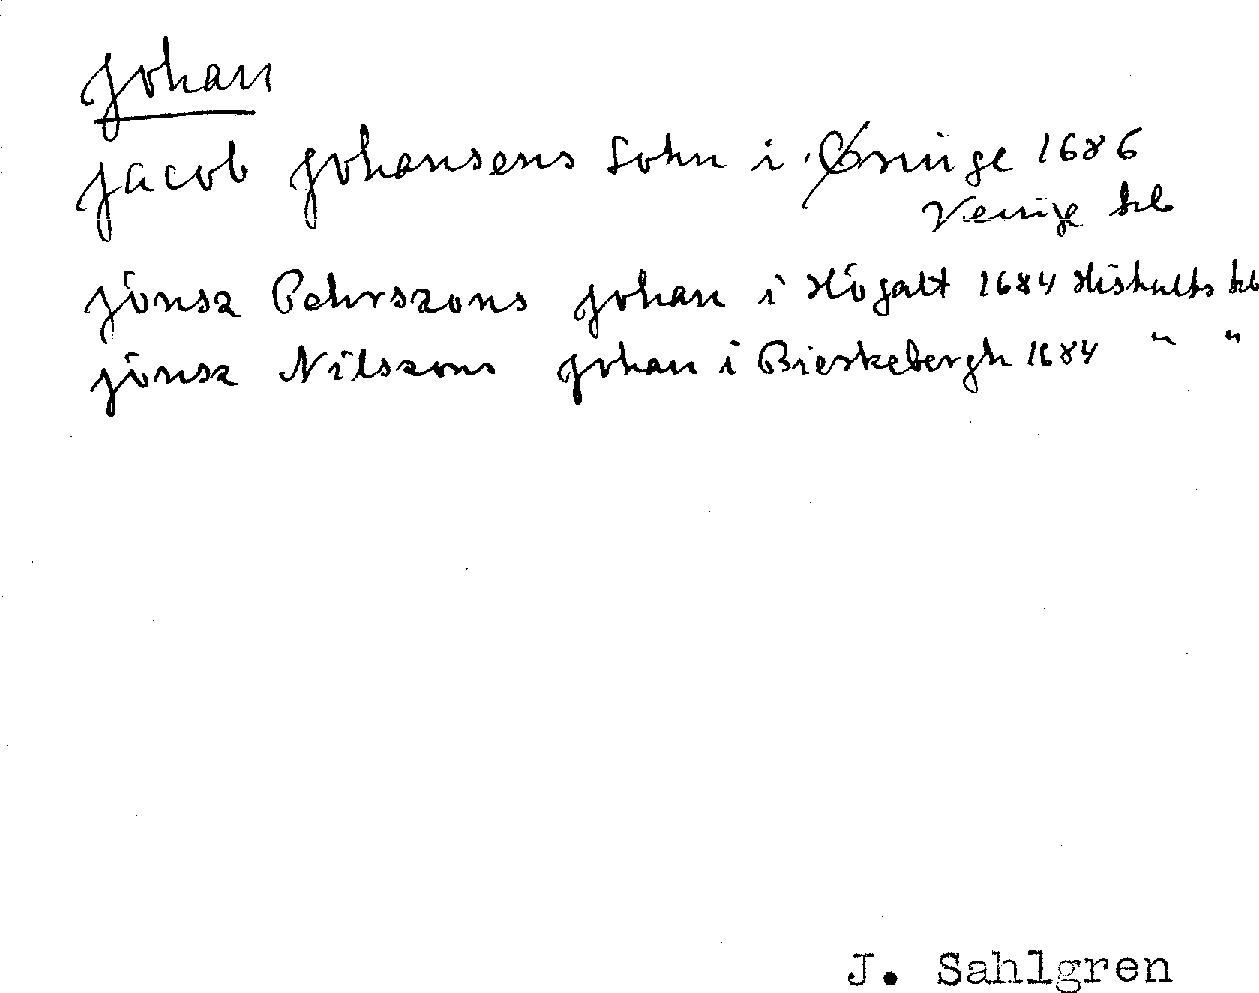 Johan
Jacob Johansens Sohn i Øninge 1686
Veinge kb
Jönsz Pehrszons Johan i Högalt 1684 Hishults kb
Jönsz Nilszons Johan i Bierkebergh 1684 " "
J. Sahlgren